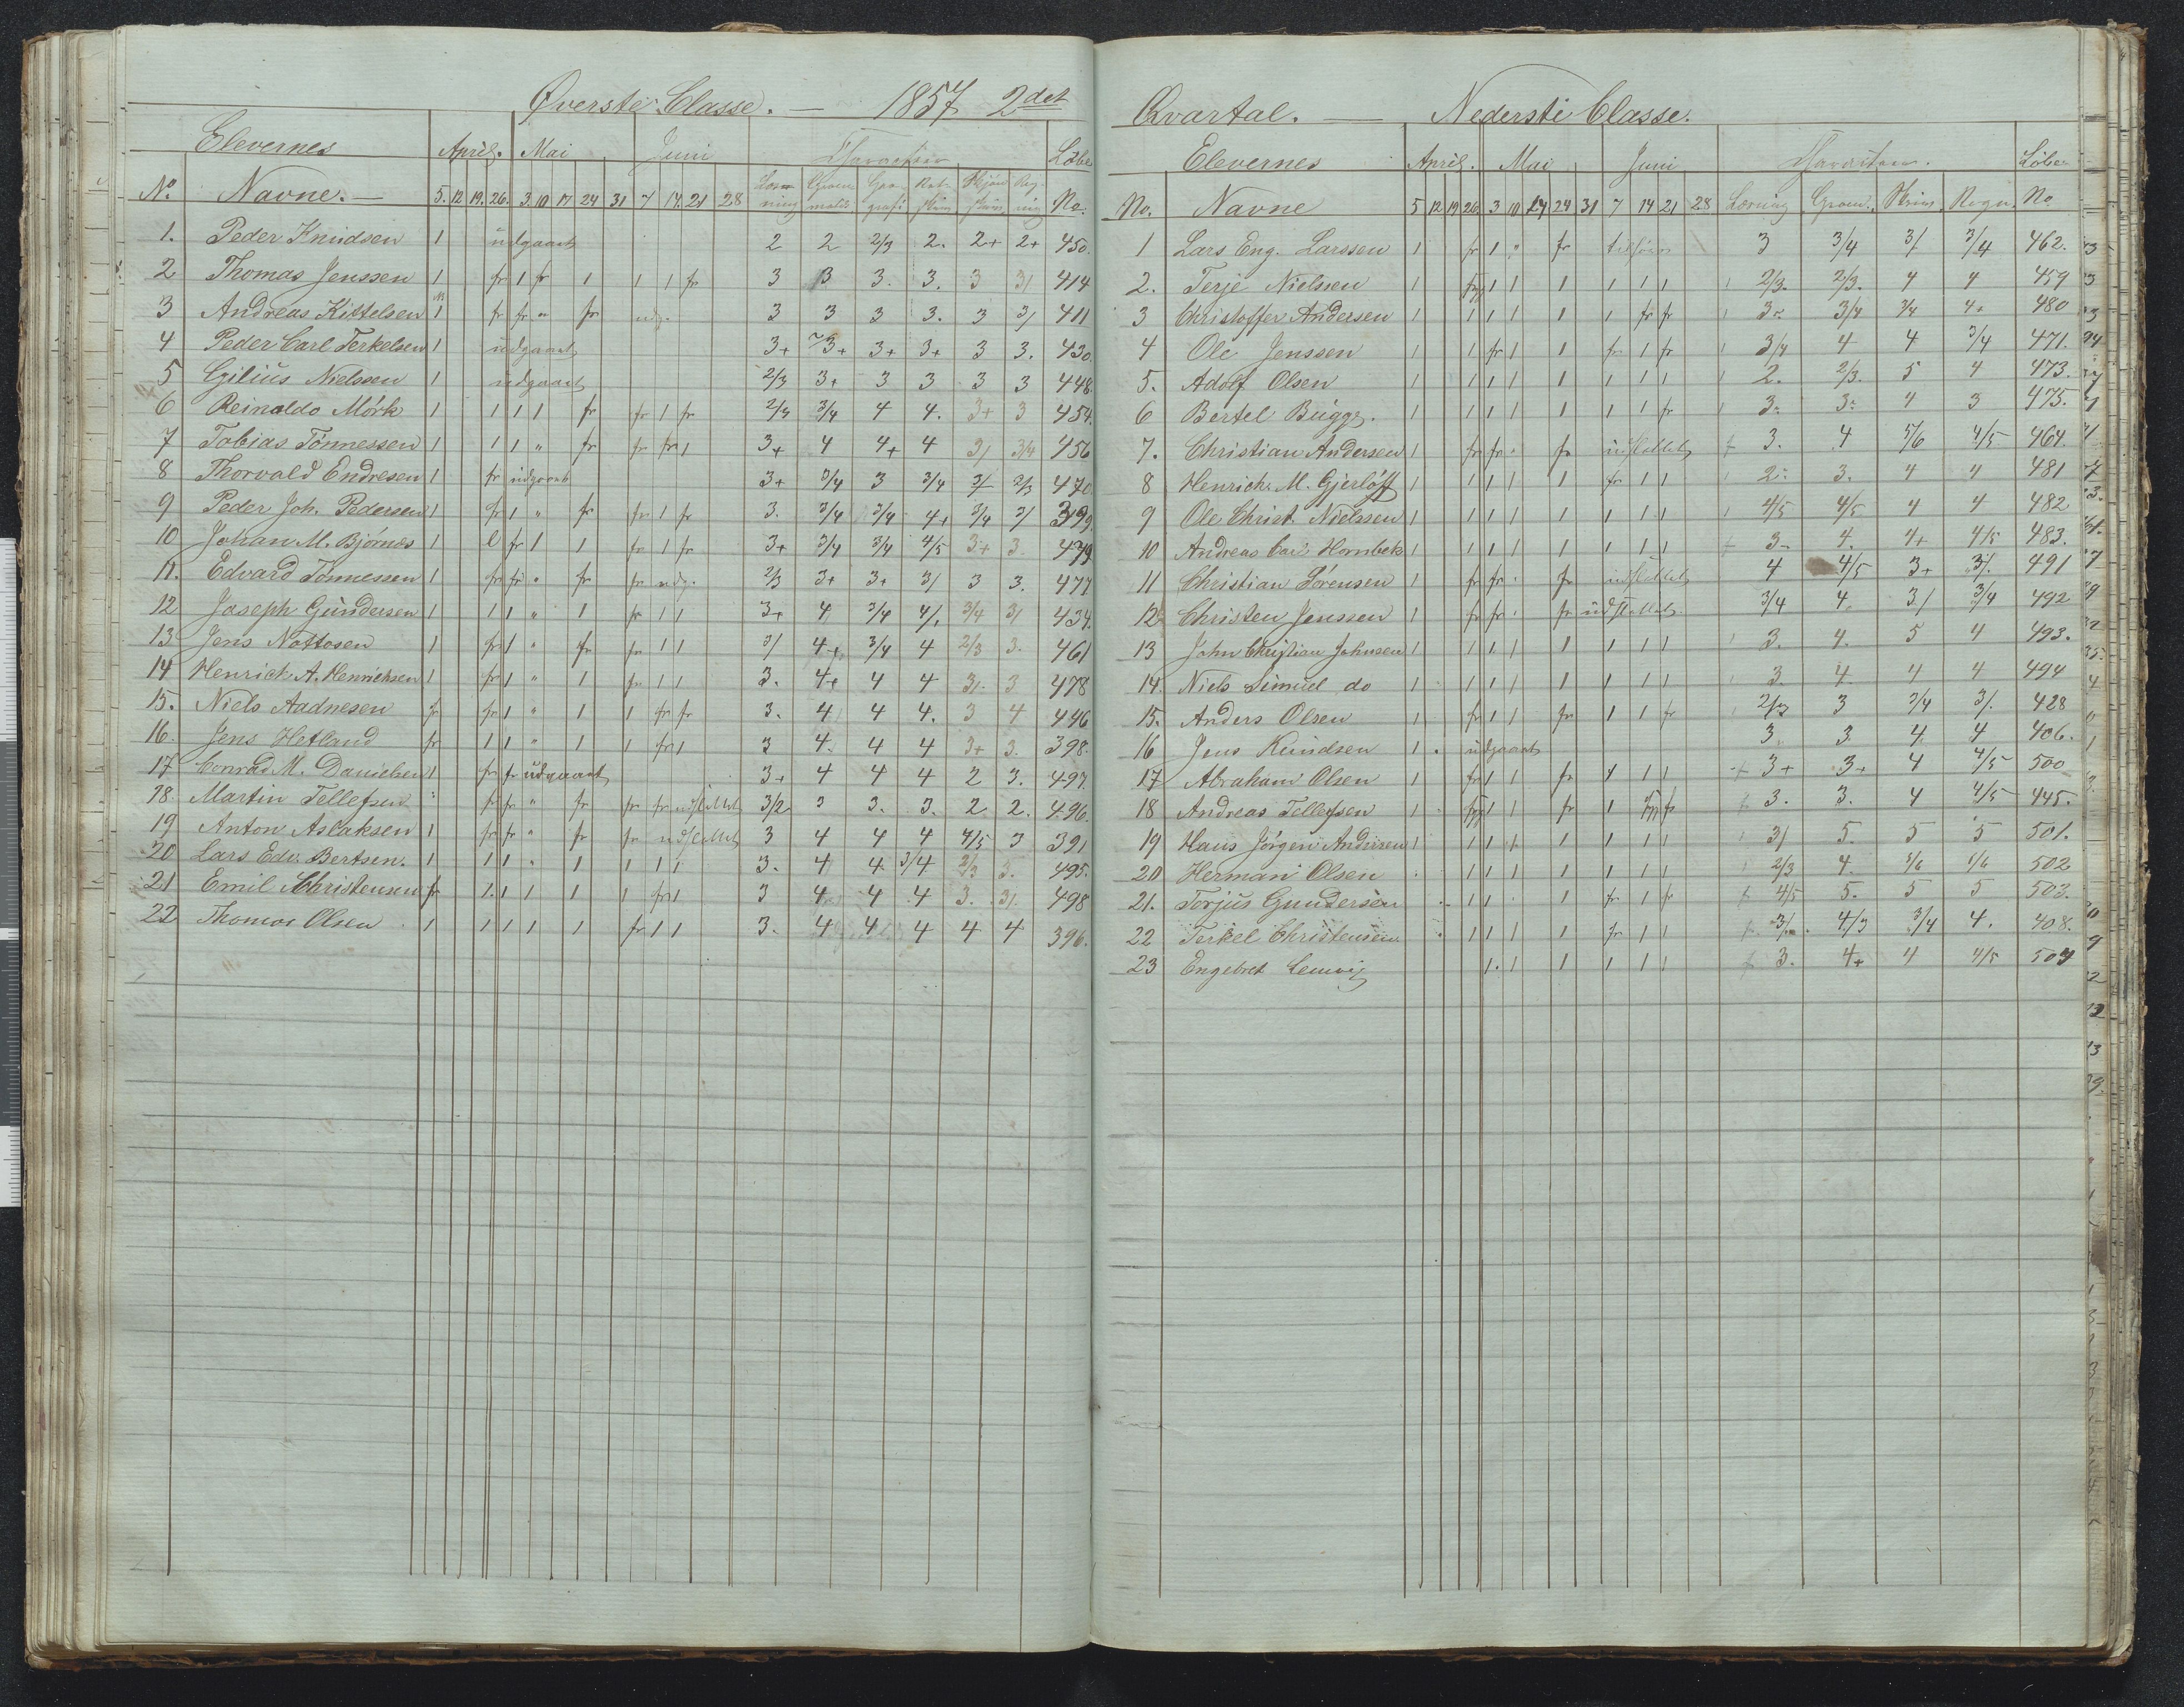 Øverste Classe. — 1857 2det
Elevernes April. Mai Juni Charakter Løbe
No. Navne. — 5. 12 19. 26. 3. 10 17 24 31 7 14. 21 28 Læsning No.
1. Peder Knudsen 1 udgaaet 2 2 2/3 2. 2+ 2+ 450.
2 Thomas Jenssen 1 fr 1 fr 1 1 1 fr 3 3 3. 3. 3 3/ 414
3 Andreas Kittelsen 1 fr fr " fr udg. 3 3 3 3. 3 3/ 411
4 Peder Carl Terkelsen 1 udgaaet 3+ 3+ 3+ 3+ 3 3. 430.
5 Gilius Nielssen 1 udgaaet 2/3 3+ 3 3 3 3 448.
6 Reinaldo Mørk 1 1 1 1 fr fr 1 fr 2/3 3/4 4 4. 3+ 3 454.
7 Tobias Tønnessen 1 1 1 " fr fr fr 1 3+ 4 4+ 4 3/ 3/4 456
8 Thorvald Endresen 1 fr udgaaet 3+ 3/4 3 3/4 3/ 2/3 470.
9 Peder Joh. Pedersen 1 fr 1 " fr fr 1 fr 3. 3/4 3/4 4+ 3/4 3/ 399.
10 Johan M. Bjørnes 1 fr 1 1 fr 1 fr 3+ 3/4 3/4 4/5 3+ 3. 479
11. Edvard Tønnessen 1 fr fr " fr fr udg. 2/3 3+ 3+ 3/ 3 3. 477
12 Joseph Gundersen 1 1 1 " 1 fr 1 1 3+ 4 3/4 4/. 3/4 3/ 434.
13 Jens Nottosen 1 fr 1 " fr fr 1 1 3/ 4+ 3/4 4 2/3 3. 461
14 Henrick A. Henrichsen 1 fr 1 " 1 fr 1 1 3. 4+ 4 4 3/. 3 478
15. Niels Aadnesen fr fr 1 " 1 1 fr fr 3. 4 4 4. 3 4 446
16. Jens Hetland fr 1 1 " 1 1 fr 1 3 4. 4 4 3+ 3. 398.
17 Conrad M. Danielsen 1 fr fr udgaaet 3+ 4 4 4 2 3. 497.
18. Martin Tellefsen " fr fr " fr fr fr udslettet 3/2 3 3. 3. 2 2. 496.
19 Anton Aslaksen 1 fr fr " fr fr udslettet 3 4 4 4 4/5 3 391
20 Lars Edv. Bertsen. 1 1 1 " 1 1 1 1 3. 4 4 3/4 2/3 3. 495.
21 Emil Christensen fr 1. 1 1 1 1 fr 1 3 4 4 4 3. 3/. 498
22 Thomas Olsen 1 1 1 1 1 fr 1 1 3. 4 4 4 4 4 396.
Qvartal. — Nederste Classe.
Elevernes April. Mai Juni Charakter. Løbe
No. Navne 5 12 19 26 3 10 17 24 31 7 14 21 28 Læsning Skriv. Regn. No
1 Lars Eng. Larssen 1 fr 1 " fr tilsøes 3 3/4 3/ 3/4 462.
2. Terje Nielssen 1 1 1 1 1 1 1 1 2/3. 2/3. 4 4 459
3 Christoffer Andersen 1 1 1 1 1 1 fr fr 1 3- 3/4 3/4 4+ 480
4 Ole Jenssen 1 1 fr 1 1 fr 1 fr 1 3/4 4 4 3/4 471.
5. Adolf Olsen 1 1 1 1 1 1 1 1 1 2. 2/3. 5 4 473.
6 Bertel Bugge. 1 1 1 1 1 1 1 fr 1 3- 3- 4 3 475.
7. Christian Andersen 1 fr fr " fr udslettet 3. 4 5/6 4/5 464.
8 Henrich. M. Gjerløff 1 1 1 1 1 fr 1 1 1 2- 3. 4 4 481
9 Ole Christ. Nielssen 1 1 1 1 1 1 1 1 1 4/5 4/5 4 4 482
10 Andreas Carl Hornbek 1 1 1 1 1 1 1 1 3- 4. 4+ 4/5 483.
11 Christian Sørensen 1 fr fr " fr udslettet 4 4/5 3+ 3/. 491
12 Christen Jenssen 1 fr fr " fr udslettet 3/4 4. 3/ 3/4 492
13 John Christian Johnsen 1 1 1 1 1 1 1 1 1 3. 4. 5 4 493.
14. Niels Simuel do 1 1 1 1 1 1 1 1 1 3 4 4 4 494
15. Anders Olsen 1 fr 1 1 fr 1 1 fr 1 2/3 3 3/4 3/. 428
16 Jens Knudsen 1 udgaaet 3. 3 4 4 406.
17 Abraham Olsen 1 fr 1 1 fr 1 1 1 3+ 3+ 4 4/5 500
18 Andreas Tellefsen 1 1 1 fr 1 fr 3. 3. 4 4/5 445.
19 Hans Jørgen Andersen 1 1 1 1 1 1 1 1 1 3/ 5. 5 5 501.
20 Herman Olsen 1 1 1 1 1 1 1 2/3 4. 502
21. Torjus Gundersen 1 1 1 fr 1 fr 4/5 5. 5 5 503.
22 Terkel Christensen 1 1 1 1 fr 1 1 3/. 4/3 3/4 4. 408.
23 Engebret Lemvig 1. 1 1 1 1 1 3. 4+ 4 4/5 504